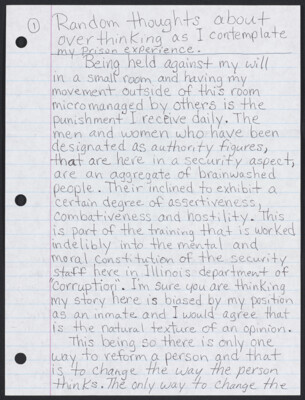 1
Random thoughts about
overthinking as I contemplate
my prison experience.
Being held against my will
in a small room and having my
movement outside of this room
micromanaged by others is the
punishment I receive daily. The
men and women who have been
designated as authority figures,
that are here in a security aspect,
are an aggregate of brainwashed
people. Their inclined to exhibit a
certain degree of assertiveness,
combativeness and hostility. This
is part of the training that is worked
indelibly into the mental and
moral constitution of the security
staff here in Illinois department of
"Corruption". I'm sure you are thinking
my story here is biased by my position
as an inmate and I would agree that
is the natural texture of an opinion.
This being so there is only one
way to reform a person and that
is to change the way the person
thinks. The only way to change the